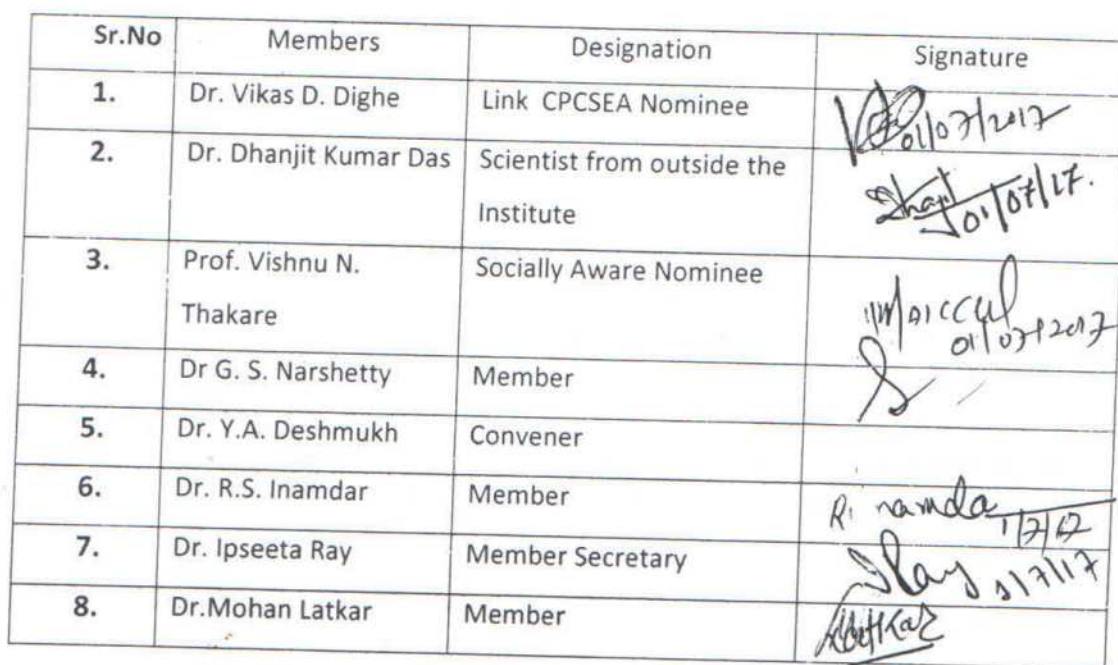 Sr.No Members Designation Signature
1. Dr. Vikas D. Dighe Link CPCSEA Nominee 01/07/2017
2. Dr. Dhanjit Kumar Das Scientist from outside the
Institute 01/07/17.
3. Prof. Vishnu N. Socially Aware Nominee
Thakare 01/07/2017
4. Dr G. S. Narshetty Member
5. Dr. Y.A. Deshmukh Convener
6. Dr. R.S. Inamdar Member 1/7/17
7. Dr. Ipseeta Ray Member Secretary 1/7/17
8. Dr.Mohan Latkar Member